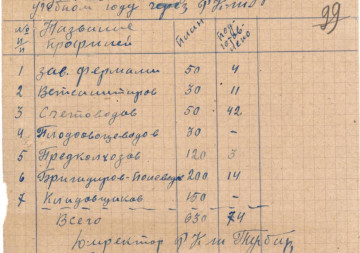 учебном году через РКШ
99
№ п/п Название профилей План Подготовлено
1 Зав. фермами 50 4
2 Ветсанитаров 30 11
3 Счетоводов 50 42
4 Плодоовощеводов 30 –
5 Предколхозов 120 3
6 Бригадиров-Полеводов 200 14
7 Кладовщиков 150 –
Всего 630 74
Директор РКШ